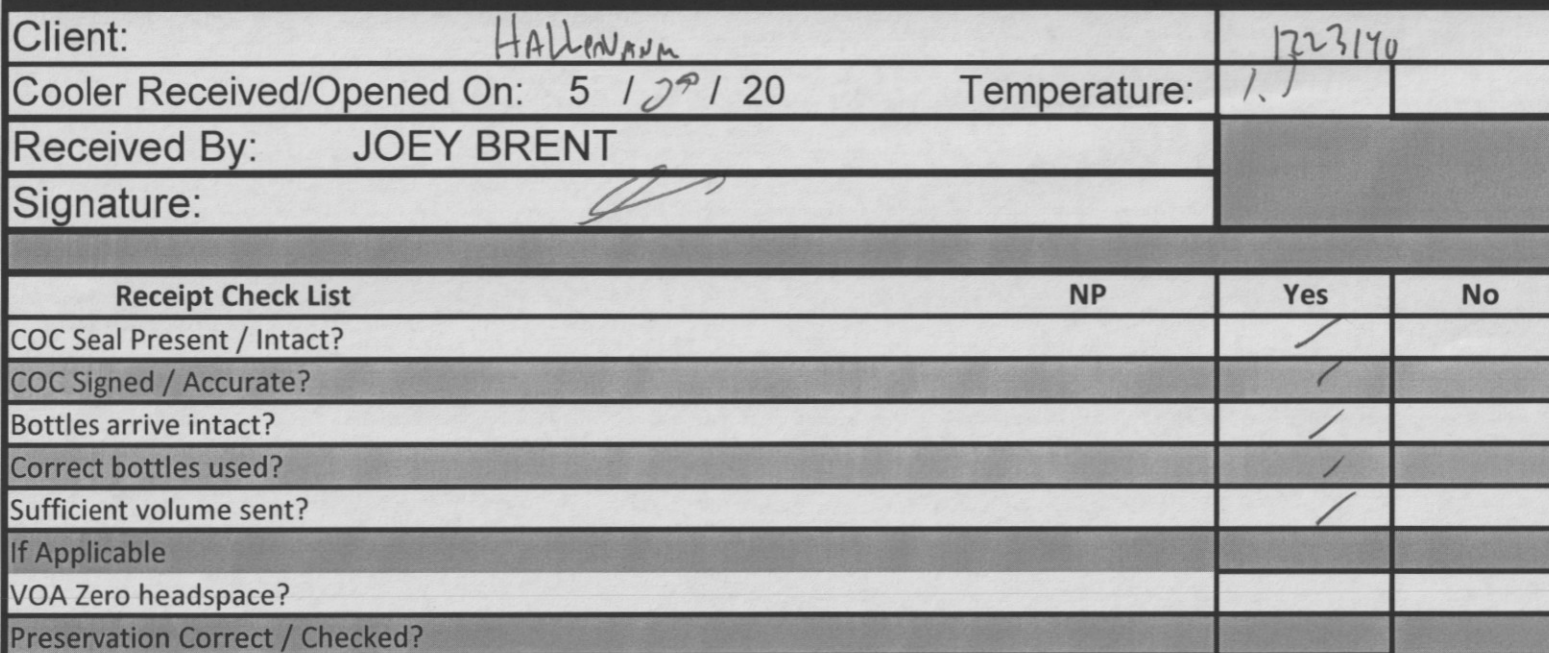 Client: 1223140
Cooler Received/Opened On: 5 / / 20 Temperature:
Received By: JOEY BRENT
Signature:
Receipt Check List NP Yes No
COC Seal Present / Intact?
COC Signed / Accurate?
Bottles arrive intact?
Correct bottles used?
Sufficient volume sent?
If Applicable
VOA Zero headspace?
Preservation Correct / Checked?